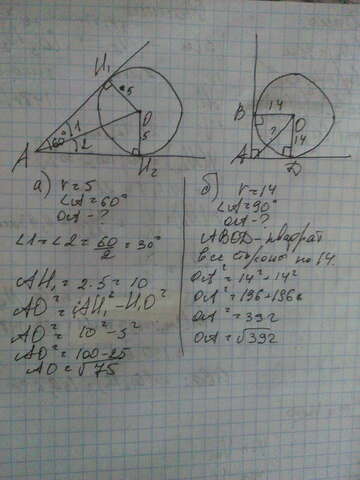 а)
H₁
5
O
60°
1
2
5
A
H₂
а) r = 5
∠A = 60°
OA - ?
∠1 = ∠2 = 60/2 = 30°
AH₁ = 2·5 = 10
AO² = AH₁² - H₁O²
AO² = 10² - 5²
AO² = 100 - 25
AO = √75
б)
B
14
O
?
14
A
D
б) r = 14
∠A = 90°
OA - ?
ABOD - квадрат
все стороны по 14.
OA² = 14² + 14²
OA² = 196 + 196
OA² = 392
OA = √392